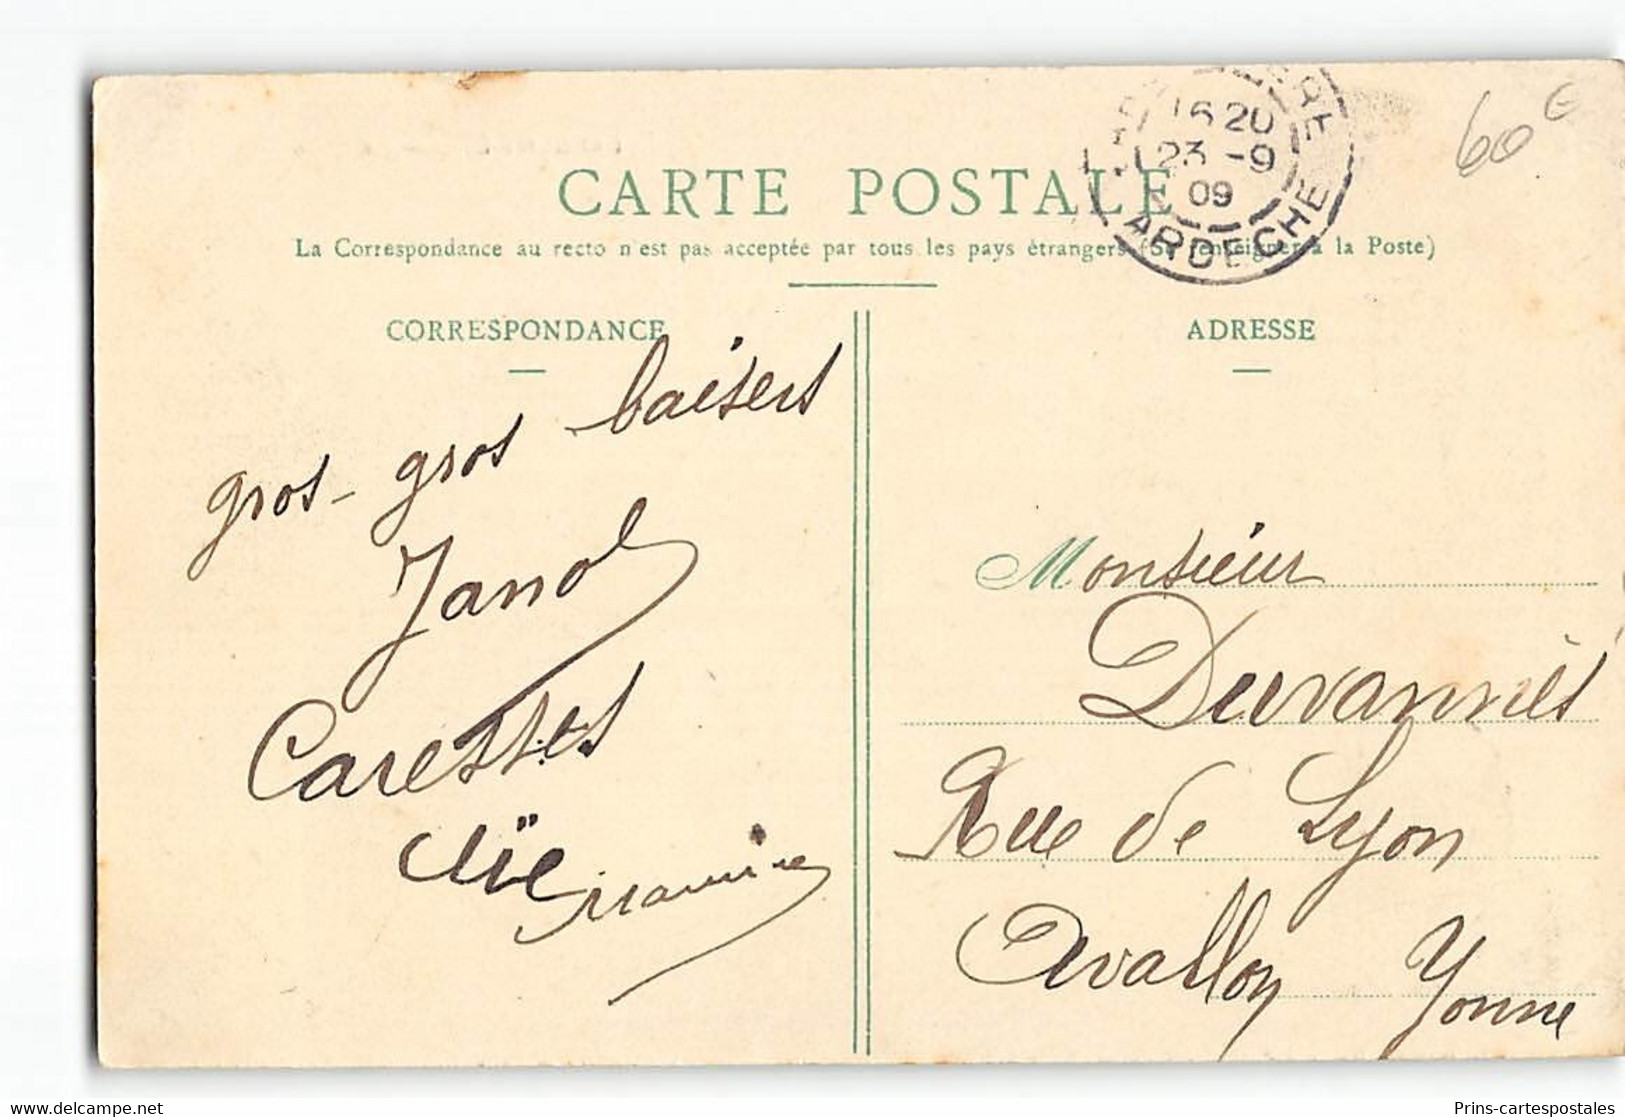 60 €
16 20
23 -9
09
ARDECHE
CARTE POSTALE
La Correspondance au recto n'est pas acceptée par tous les pays étrangers (Se renseigner à la Poste)
CORRESPONDANCE
gros - gros baisers
Janol
Caresses
ADRESSE
Monsieur
Duvannès
Rue de Lyon
Avallon Yonne
www.delcampe.net
Prins-cartespostales